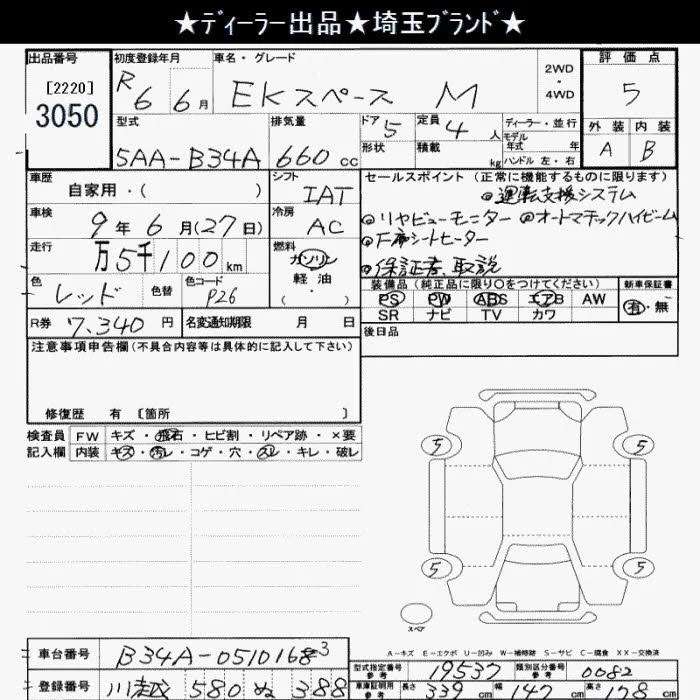 ★ディーラー出品★埼玉ブランド★
出品番号 初度登録年月 車名・グレード 2WD・4WD 評価点
[2220] 3050 R6 6月 EKスペース M 5
型式 排気量 ドア 定員 ディーラー・並行 外装 内装
5AA-B34A 660cc 5 4人 モデル年式 年 A B
形状 積載 kg ハンドル 左・右
車歴 自家用・( ) シフト IAT セールスポイント(正常に機能するものに限ります)
◎運転支援システム
車検 9年6月(27日) 冷房 AC ◎リヤビューモニター ◎オートマチックハイビーム
走行 万5千100km 燃料 ガソリン 軽油 ( )
◎保証書、取説
色 レッド 色替 色コード P26 装備品(純正品に限り○をつけてください) 新車保証書
PS PW ABS エアB AW 有・無
R券 7,340円 名変通知期限 月 日 SR ナビ TV カワ
注意事項申告欄(不具合内容等は具体的に記入して下さい) 後日品
修復歴 有 [箇所 ]
検査員 FW キズ・飛石・ヒビ割・リペア跡・×要
記入欄 内装 キズ・汚レ・コゲ・穴・スレ・キレ・破レ
5 5
5 5
スペア
A-キズ E-エクボ U-凹み W-補修跡 S-サビ C-腐食 XX-交換済
車台番号 B34A-0510168 3 型式指定番号 参考 19537 類別区分番号 参考 0682
登録番号 川越 580 ぬ 388 車庫証明用 参考 長さ 339cm 幅 147cm 高さ 178cm